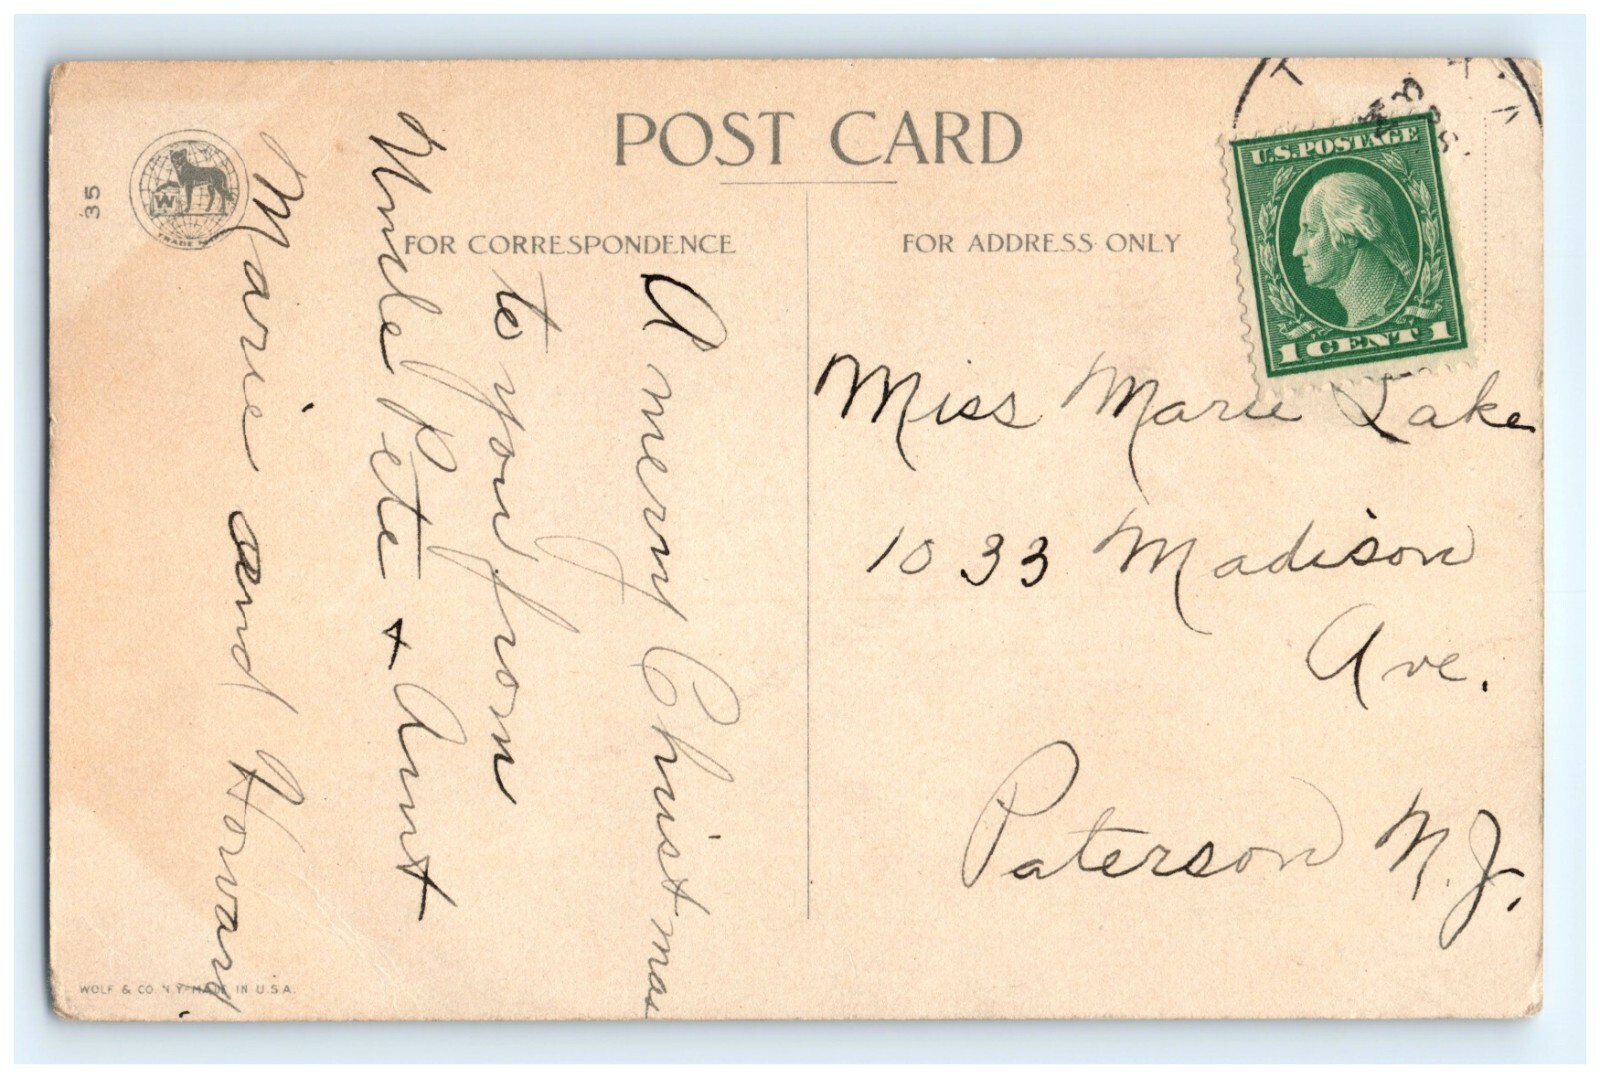 POST CARD
35
W
TRADE
FOR CORRESPONDENCE
FOR ADDRESS ONLY
U.S. POSTAGE
1 CENT 1
A merry Christmas
to you from
Uncle Pete + Aunt
Marie and Howard.
Miss Marie Lake
1033 Madison
Ave.
Paterson N.J.
WOLF & CO. N.Y. MADE IN U.S.A.